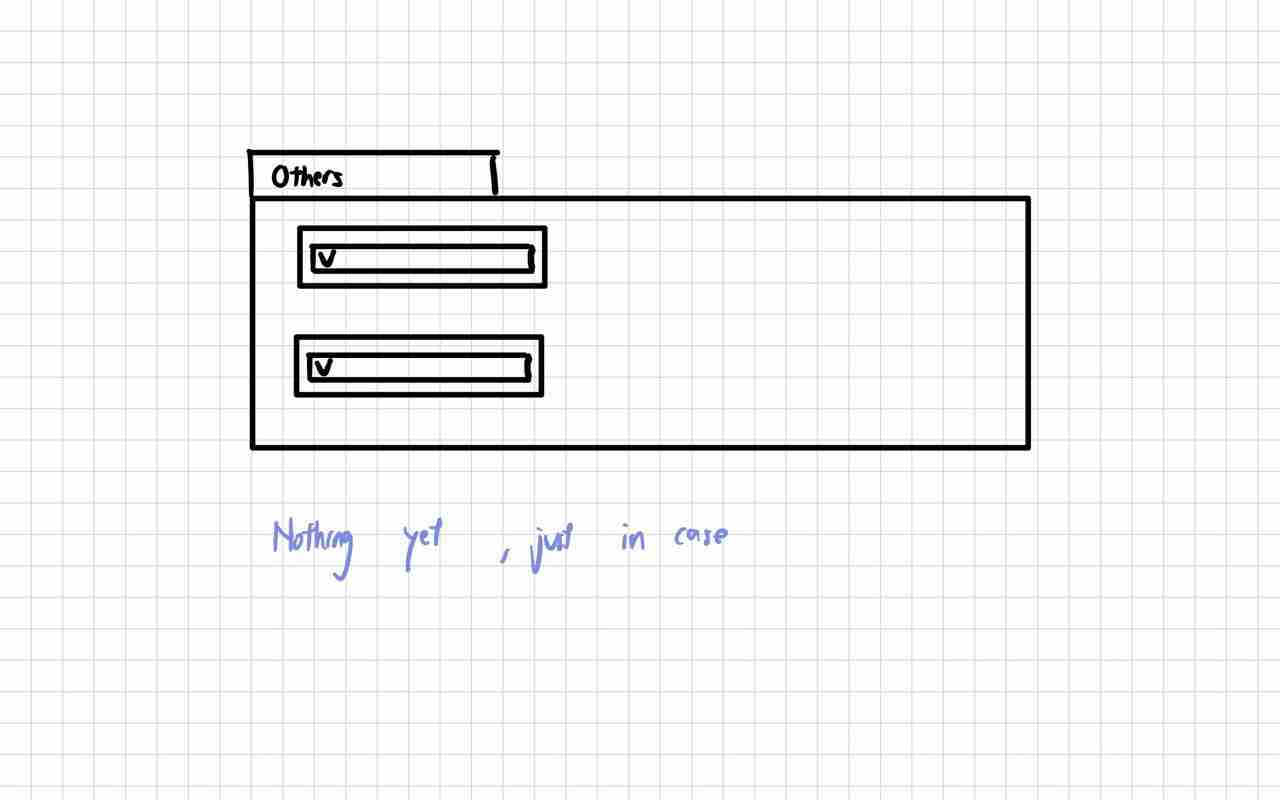 Others
V
V
Nothing yet , just in case